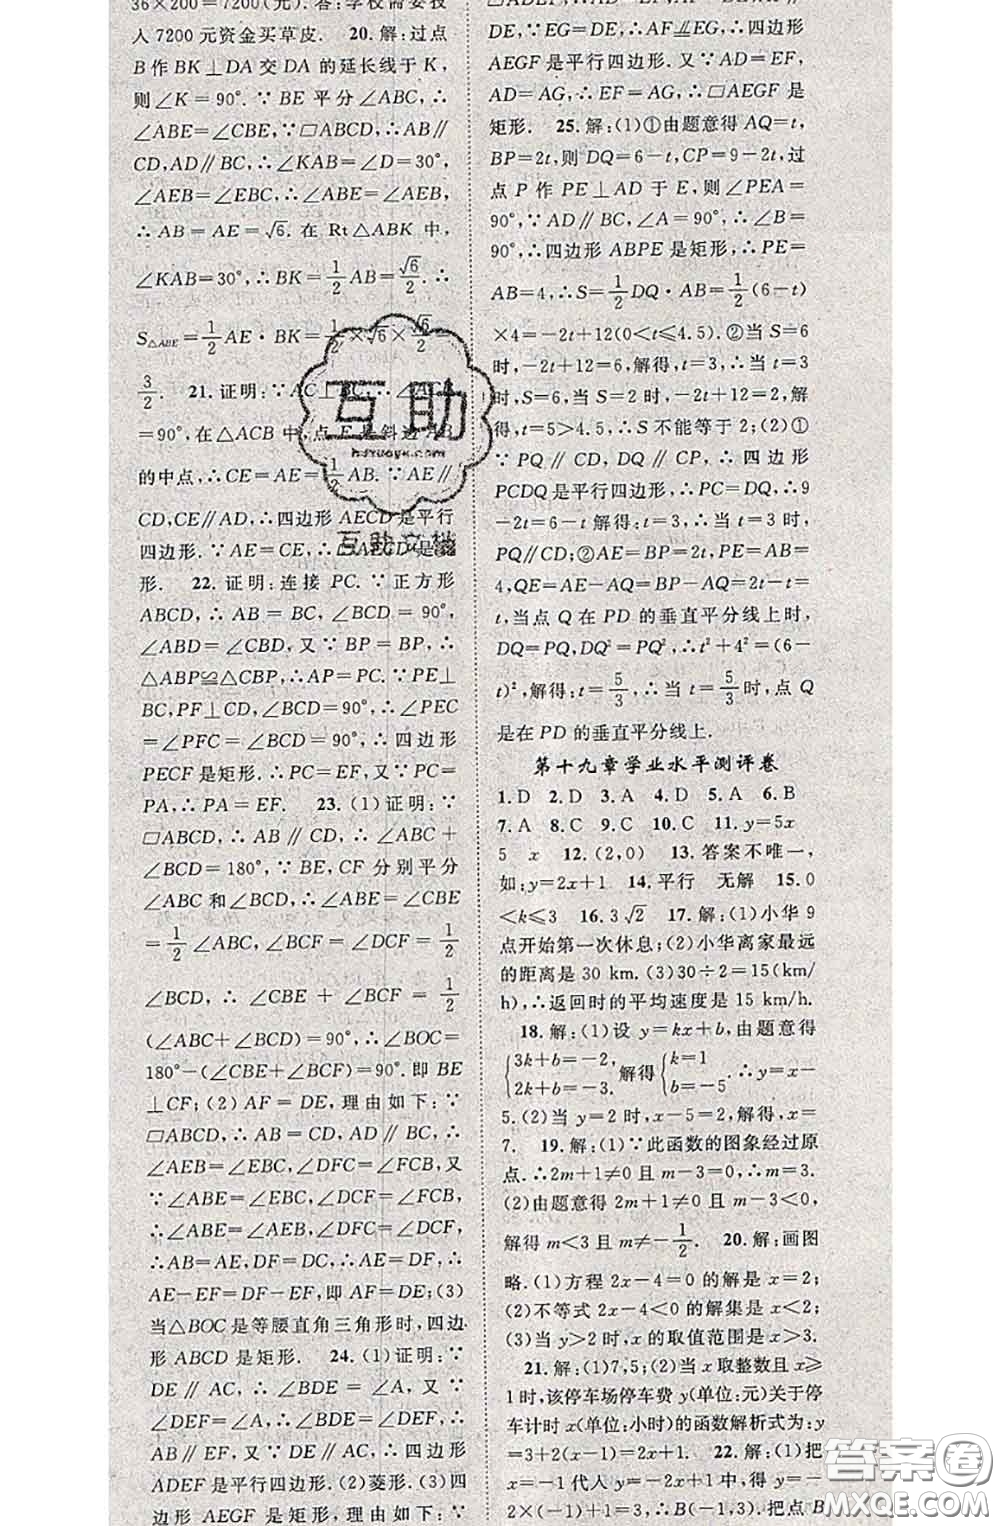 36×200=7200(元).答:学校需要投
入 7200 元资金买草皮. 20.解:过点
B 作 BK⊥DA 交 DA 的延长线于 K,
则∠K=90°.∵BE 平分∠ABC,∴
∠ABE=∠CBE,∵□ABCD,∴AB∥
CD,AD∥BC,∴∠KAB=∠D=30°,
∠AEB=∠EBC,∴∠ABE=∠AEB,
∴AB=AE=√6.在 Rt△ABK 中,
∠KAB=30°,∴BK=1/2AB=√6/2.∴
S△ABE=1/2AE·BK=1/2×√6×√6/2=
3/2. 21.证明:∵AC⊥BC,∴∠ACB
=90°,在△ACB 中,点 E 是斜边 AB
的中点,∴CE=AE=1/2AB.∵AE∥
CD,CE∥AD,∴四边形 AECD 是平行
四边形.∵AE=CE,∴□AECD 是
形. 22.证明:连接 PC.∵正方形
ABCD,∴AB=BC,∠BCD=90°,
∠ABD=∠CBD,又∵BP=BP,∴
△ABP≌△CBP,∴AP=PC.∵PE⊥
BC,PF⊥CD,∠BCD=90°,∴∠PEC
=∠PFC=∠BCD=90°,∴四边形
PECF 是矩形.∴PC=EF,又∵PC=
PA,∴PA=EF. 23.(1)证明:∵
□ABCD,∴AB∥CD,∴∠ABC+
∠BCD=180°,∵BE,CF 分别平分
∠ABC 和∠BCD,∴∠ABE=∠CBE
=1/2∠ABC,∠BCF=∠DCF=1/2
∠BCD,∴∠CBE+∠BCF=1/2
(∠ABC+∠BCD)=90°.∴∠BOC=
180°-(∠CBE+∠BCF)=90°.即 BE
⊥CF;(2)AF=DE,理由如下:∵
□ABCD,∴AB=CD,AD∥BC,∴
∠AEB=∠EBC,∠DFC=∠FCB,又
∵∠ABE=∠EBC,∠DCF=∠FCB,
∴∠ABE=∠AEB,∠DFC=∠DCF,
∴AB=AE,DF=DC,∴AE=DF,∴
AE-EF=DF-EF,即 AF=DE;(3)
当△BOC 是等腰直角三角形时,四边
形 ABCD 是矩形. 24.(1)证明:∵
DE∥AC,∴∠BDE=∠A,又∵
∠DEF=∠A,∴∠BDE=∠DEF,∴
AB∥EF.又∵DE∥AC,∴四边形
ADEF 是平行四边形.(2)菱形.(3)四
边形 AEGF 是矩形,理由如下:∵
□ADEF,∴AF∥DE,AF=
DE,∵EG=DE,∴AF⊥∥EG,∴四边形
AEGF 是平行四边形.又∵AD=EF,
AD=AG,∴EF=AG,∴□AEGF 是
矩形. 25.解:(1)①由题意得 AQ=t,
BP=2t,则 DQ=6-t,CP=9-2t,过
点 P 作 PE⊥AD 于 E,则∠PEA=
90°,∵AD∥BC,∠A=90°,∴∠B=
90°,∴四边形 ABPE 是矩形,∴PE=
AB=4,∴S=1/2DQ·AB=1/2(6-t)
×4=-2t+12(0<t≤4.5).②当 S=6
时,-2t+12=6,解得,t=3,∴当 t=3
时,S=6,当 S=2 时,-2t+12=2,解
得,t=5>4.5,∴S 不能等于 2;(2)①
∵PQ∥CD,DQ∥CP,∴四边形
PCDQ 是平行四边形,∴PC=DQ,∴9
-2t=6-t,解得,t=3,∴当 t=3 时,
PQ∥CD;②AE=BP=2t,PE=AB=4,
QE=AE-AQ=BP-AQ=2t-t=
t,当点 Q 在 PD 的垂直平分线上时,
DQ=PQ,DQ²=PQ²,∴t²+4²=(6-
t)²,解得:t=5/3,∴当 t=5/3时,点 Q
是在 PD 的垂直平分线上.
第十九章学业水平测评卷
1.D 2.D 3.A 4.D 5.A 6.B
7.A 8.C 9.C 10.C 11.y=5x
5 x 12.(2,0) 13.答案不唯一,
如:y=2x+1 14.平行 无解 15.0
<k≤3 16.3√2 17.解:(1)小华 9
点开始第一次休息;(2)小华离家最远
的距离是 30 km.(3)30÷2=15(km/
h),∴返回时的平均速度是 15 km/h.
18.解:(1)设 y=kx+b,由题意得
{3k+b=-2, 2k+b=-3. 解得{k=1 b=-5.∴y=x-
5.(2)当 y=2 时,x-5=2,解得,x=
7. 19.解:(1)∵此函数的图象经过原
点.∴2m+1≠0 且 m-3=0,∴m=3.
(2)由题意得 2m+1≠0 且 m-3<0,
解得 m<3 且 m≠-1/2. 20.解:画图
略.(1)方程 2x-4=0 的解是 x=2;
(2)不等式 2x-4<0 的解集是 x<2;
(3)当 y>2 时,x 的取值范围是 x>3.
21.解:(1)7,5;(2)当 x 取整数且 x≥
1时,该停车场停车费 y(单位:元)关于停
车计时 x(单位:小时)的函数解析式为:y
=3+2(x-1)=2x+1. 22.解:(1)把
x=-1 代人 y=-2x+1 中,得 y=-
2×(-1)+1=3,∴B(-1,3).把点 B
互助
hdzuoye.com
互助文档
答案圈
MXQE.COM